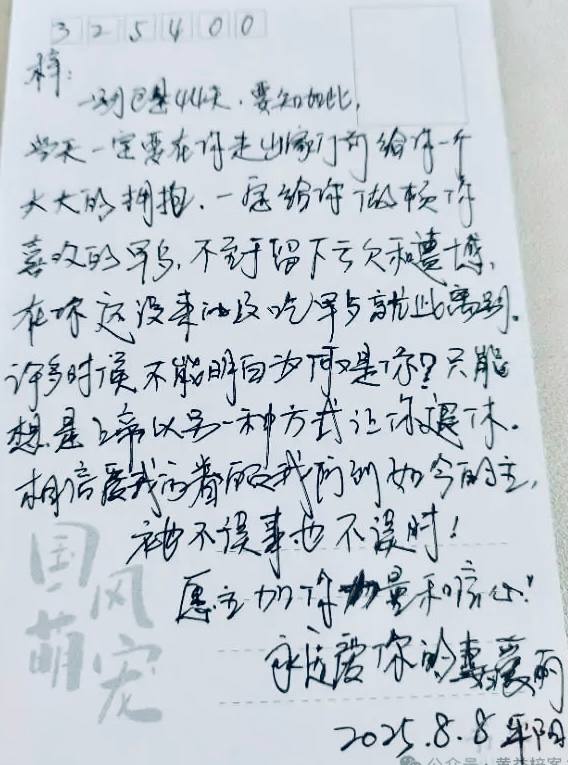 325400
梓：
一别已是44天，要知如此，
当天一定要在你走出家门前给你一个
大大的拥抱，一定给你做顿你
喜欢的早与，不至于留下亏欠和遗憾，
在你还没来的及吃早与就此离别。
许多时候不能明白为何又是你？只能
想是上帝以另一种方式让你退休。
相信爱我们眷顾我们到如今的主，
祂不误事也不误时！
愿主加你力量和信心！
永远爱你的妻爱丽
2025.8.8 平阳
国风萌宠
公众号·黄益梓案